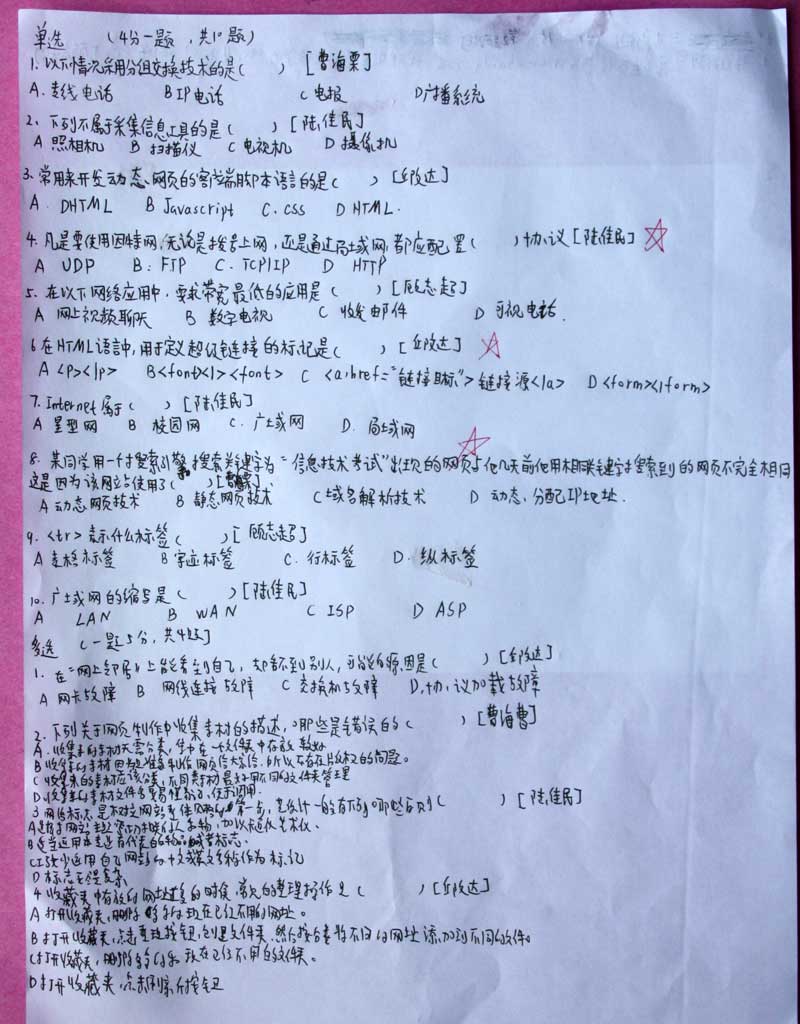 单选 (4分一题,共10题)
1. 以下情况采用分组交换技术的是( ) [曹海栗]
A. 专线电话 B IP电话 C 电报 D广播系统
2、下列不属于采集信息工具的是( ) [陆佳民]
A 照相机 B 扫描仪 C 电视机 D 摄像机
3. 常用来开发动态网页的客户端脚本语言的是( ) [邱政达]
A. DHTML B Javascript C. CSS D HTML.
4. 凡是要使用因特网,无论是拨号上网,还是通过局域网,都应配置( )协议[陆佳民]
A UDP B: FTP C. TCP/IP D HTTP
5. 在以下网络应用中,要求带宽最低的应用是( ) [顾志超]
A 网上视频聊天 B 数字电视 C 收发由邮件 D 可视电话.
6 在HTML语言中,用于定义超级链接的标记是( ) [邱政达]
A <P></P> B<font></><font> C <a,href="链接目标">链接源</a> D<form></form>
7. Internet属于( ) [陆佳民]
A 星型网 B 校园网 C. 广域网 D. 局域网
8. 某同学用一个搜索引擎搜索关键字为"信息技术考试"出现的网页与他几天前他用相同关键字搜索到的网页不完全相同
这是因为该网站使用了( )
A 动态网页技术 B 静态网页技术 C 域名解析技术 D 动态分配IP地址.
9. <tr>表示什么标签( )[顾志超]
A 表格标签 B 字迹标签 C. 行标签 D. 纵标签
10. 广域网的缩写是( )[陆佳民]
A LAN B WAN C ISP D ASP
多选 (一题5分,共4题]
1. 在"网上邻居"上能看到自己,却看不到别人,可能的原因是( )[邱政达]
A 网卡故障 B 网线连接故障 C 交换机故障 D.协议加载故障
2. 下列关于网页制作中收集素材的描述,哪些是错误的( ) [曹海曹]
A.收集来的素材无需分类,集中在一个文件夹中存放较好
B 收集的素材因为是准备制作网页的,所以不存在版权的问题。
C 收集来的素材应该分类,不同类素材最好用不同的文件夹管理
D 收集来的素材文件名要易懂易记,便于调用.
3 网络标志是不对应网站第一步,其设计一般有下列哪些原则( ) [陆佳民]
C 至少运用自己网站的中文或英文名称作为标记
D 标志不得复杂
4 收藏夹中存放的网址过多的时候,常见的整理操作是( ) [邱政达]
A 打开收藏夹,删除现在已经不用的网址。
B 打开收藏夹,点击整理按钮,创建文件夹,然后按分类将不同的网址添加到不同的文件。
C 打开收藏夹,删除现在已经不用的文件夹。
D 打开收藏夹,点击刷新按钮